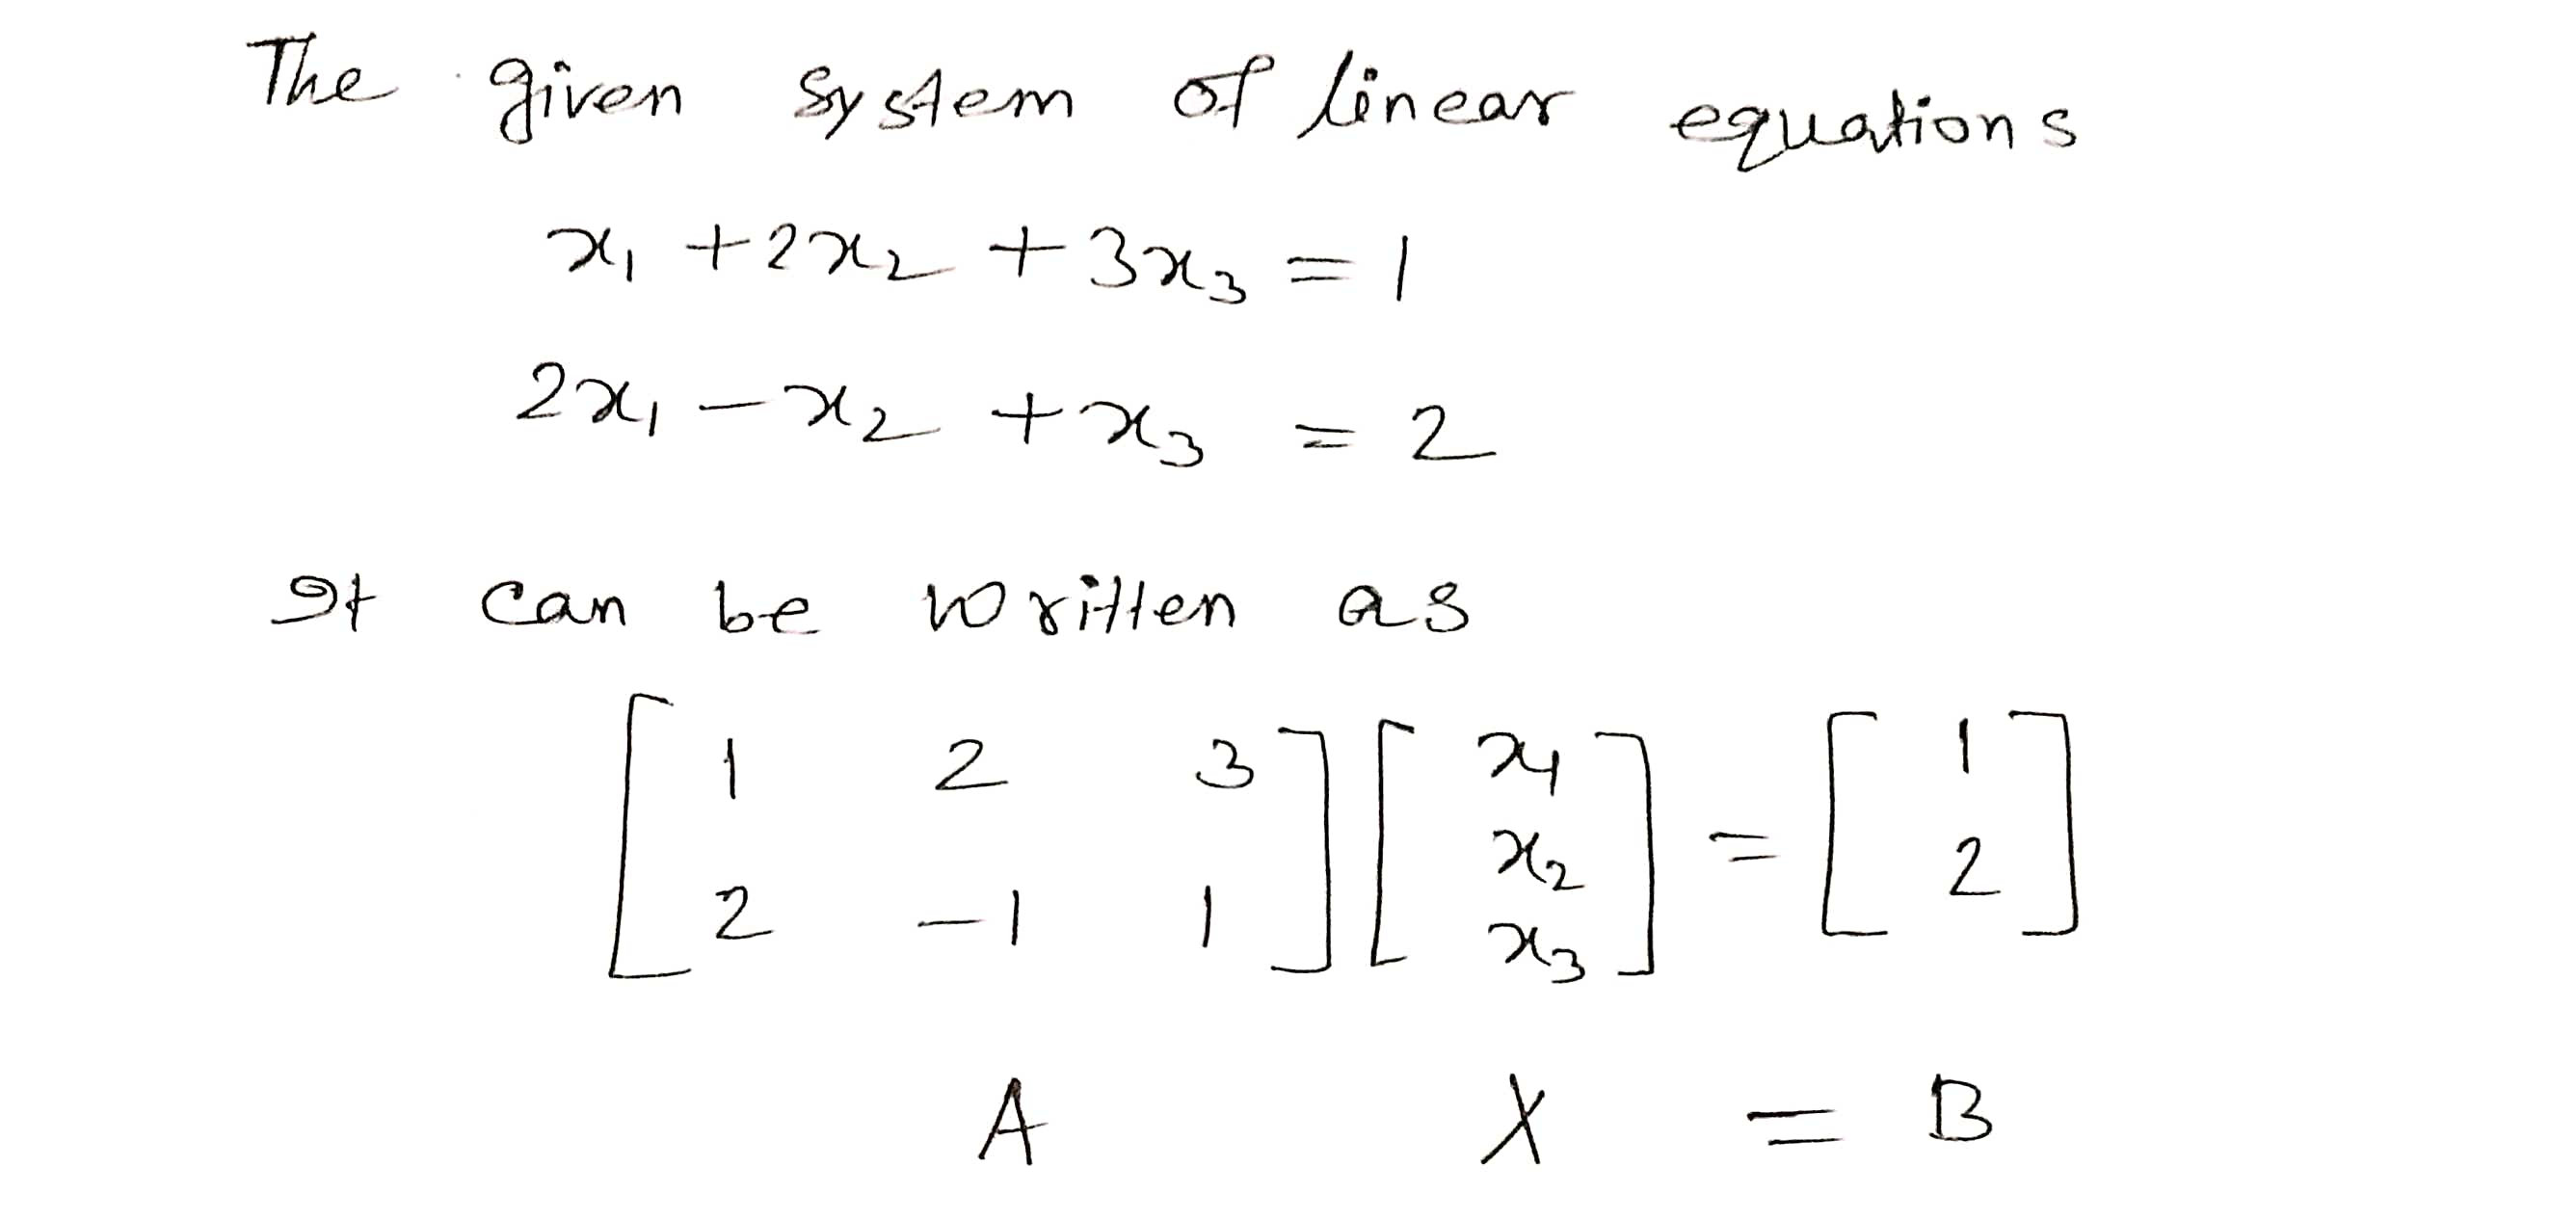 The given system of linear equations
x₁ + 2x₂ + 3x₃ = 1
2x₁ − x₂ + x₃ = 2
It can be written as
[1 2 3; 2 −1 1] [x₁; x₂; x₃] = [1; 2]
A X = B